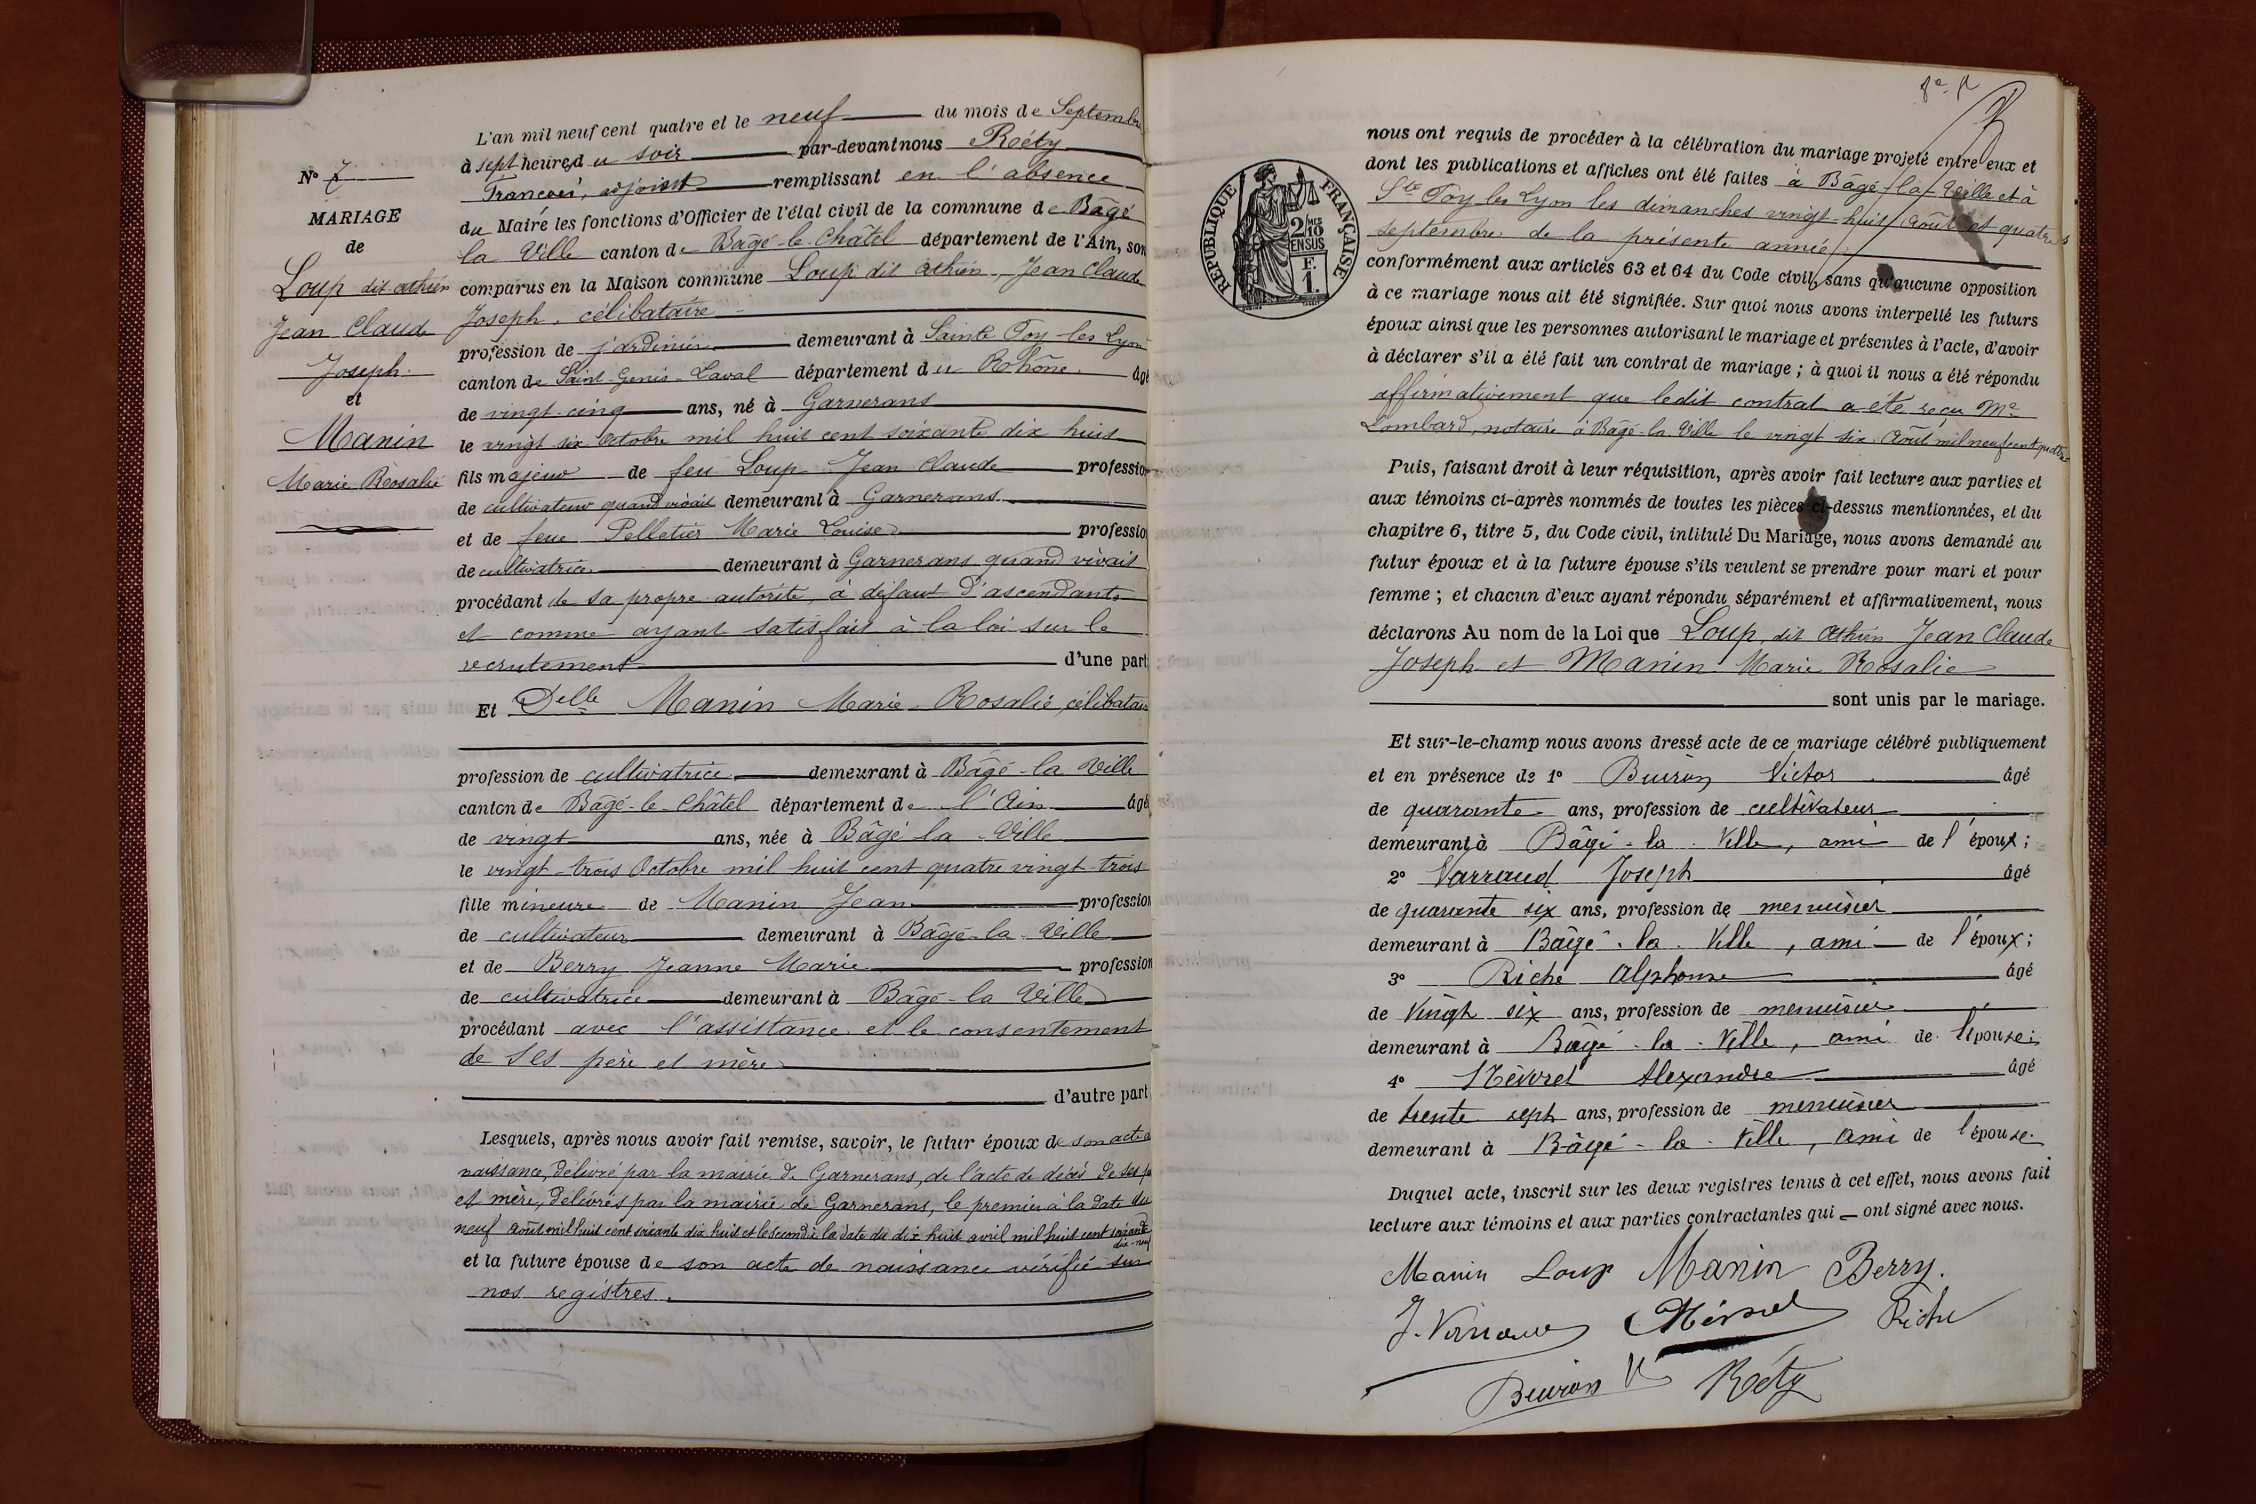 N° 7
MARIAGE
de
Loup dit athién
Jean Claude
Joseph.
et
Manin
Marie Rosalie
L'an mil neuf cent quatre et le neuf du mois de Septembre
à sept heures du soir par-devant nous Réty
François, adjoint remplissant en l'absence
du Maire les fonctions d'Officier de l'état civil de la commune de Bâgé
la Ville canton de Bâgé-le-Châtel département de l'Ain, son
comparus en la Maison commune Loup dit athién, Jean Claude
Joseph, célibataire
profession de jardinier demeurant à Sainte Foy-les-Lyon
canton de Saint-Genis-Laval département du Rhône. âgé
de vingt-cinq ans, né à Garnerans
le vingt six octobre mil huit cent soixante dix huit
fils majeur de feu Loup Jean Claude profession
de cultivateur quand vivait demeurant à Garnerans
et de feue Pelletier Marie Louise professio
de cultivatrice demeurant à Garnerans quand vivait
procédant de sa propre autorité, à défaut d'ascendants
et comme ayant satisfait à la loi sur le
recrutement d'une part
Et Delle Manin Marie-Rosalie, célibatair
profession de cultivatrice demeurant à Bâgé-la-Ville
canton de Bâgé-le-Châtel département de l'Ain âgé
de vingt ans, née à Bâgé-la-Ville
le vingt-trois Octobre mil huit cent quatre vingt-trois
fille mineure de Manin Jean profession
de cultivateur demeurant à Bâgé-la-Ville
et de Berry Jeanne Marie profession
de cultivatrice demeurant à Bâgé-la-Ville
procédant avec l'assistance et le consentement
de ses père et mère
d'autre part
Lesquels, après nous avoir fait remise, savoir, le futur époux de son acte d
naissance, délivré par la mairie de Garnerans, de l'acte de décès de ses p
et mère, délivrés par la mairie de Garnerans, le premier à la date du
neuf août mil huit cent soixante dix huit et le second à la date du dix huit avril mil huit cent soixante
dix-neuf
et la future épouse de son acte de naissance vérifié sur
nos registres.
RÉPUBLIQUE FRANÇAISE
2/10
EN SUS
F.
1.
nous ont requis de procéder à la célébration du mariage projeté entre eux et
dont les publications et affiches ont été faites à Bâgé-la-Ville et à
Ste Foy les Lyon les dimanches vingt-huit Août et quatre
septembre de la présente année
conformément aux articles 63 et 64 du Code civil, sans qu'aucune opposition
à ce mariage nous ait été signifiée. Sur quoi nous avons interpellé les futurs
époux ainsi que les personnes autorisant le mariage et présentes à l'acte, d'avoir
à déclarer s'il a été fait un contrat de mariage ; à quoi il nous a été répondu
affirmativement que ledit contrat a été reçu Me
Lombard, notaire à Bâgé-la-Ville le vingt six Août mil neuf cent quatre
Puis, faisant droit à leur réquisition, après avoir fait lecture aux parties et
aux témoins ci-après nommés de toutes les pièces ci-dessus mentionnées, et du
chapitre 6, titre 5, du Code civil, intitulé Du Mariage, nous avons demandé au
futur époux et à la future épouse s'ils veulent se prendre pour mari et pour
femme ; et chacun d'eux ayant répondu séparément et affirmativement, nous
déclarons Au nom de la Loi que Loup, dit athién Jean Claude
Joseph et Manin Marie Rosalie
sont unis par le mariage.
Et sur-le-champ nous avons dressé acte de ce mariage célébré publiquement
et en présence de 1° Buiron Victor âgé
de quarante ans, profession de cultivateur
demeurant à Bâgé-la-Ville, ami de l'époux ;
2° Varraud Joseph âgé
de quarante six ans, profession de menuisier
demeurant à Bâgé-la-Ville, ami de l'époux ;
3° Riche Alphonse âgé
de vingt six ans, profession de menuisier
demeurant à Bâgé-la-Ville, ami de l'épouse ;
4° Névoret Alexandre âgé
de trente sept ans, profession de menuisier
demeurant à Bâgé-la-Ville, ami de l'épouse.
Duquel acte, inscrit sur les deux registres tenus à cet effet, nous avons fait
lecture aux témoins et aux parties contractantes qui ont signé avec nous.
Manin Loup Manin Berry.
Riche
Buiron V Réty